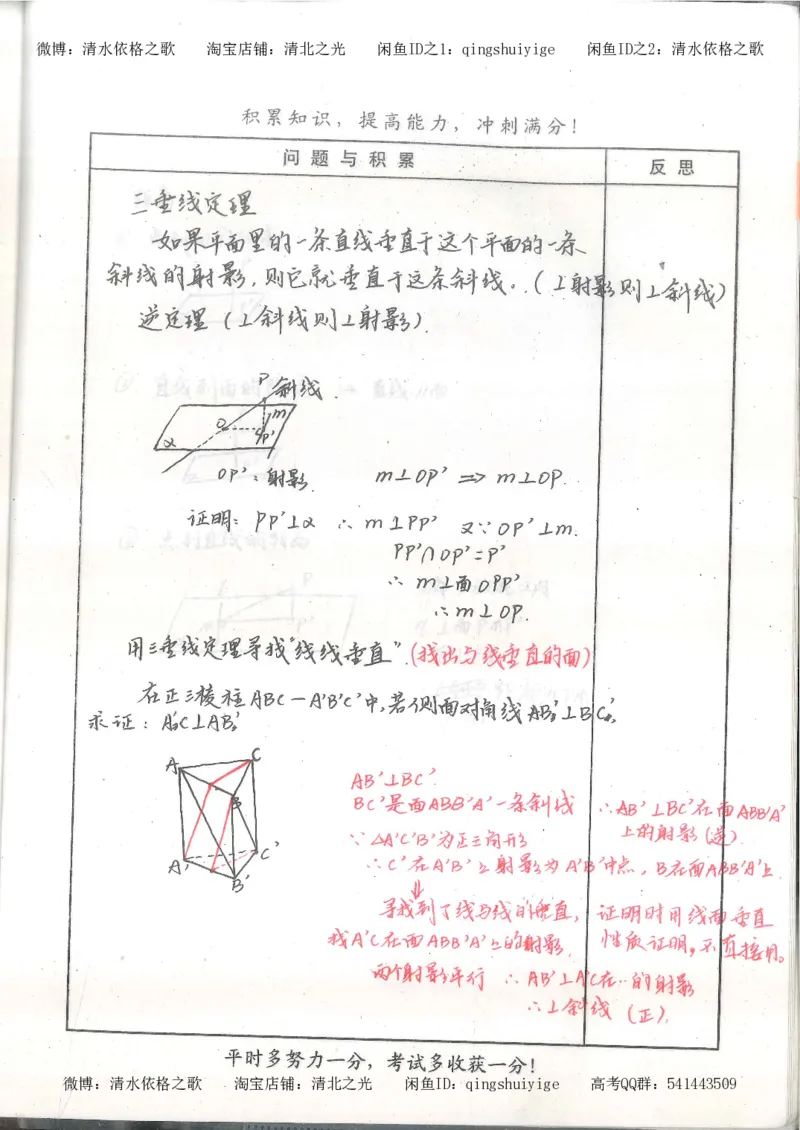 微博：清水依格之歌 淘宝店铺：清北之光 闲鱼ID之1：qingshuiyige 闲鱼ID之2：清水依格之歌
积累知识，提高能力，冲刺满分！
问题与积累
反思
三垂线定理
如果平面里的一条直线垂直于这个平面的一条
斜线的射影，则它就垂直于这条斜线。(⊥射影则⊥斜线)
逆定理 (⊥斜线则⊥射影).
P 斜线.
m
O
P'
α
OP'：射影
m⊥OP' ⇒ m⊥OP.
证明：PP'⊥α ∴ m⊥PP' 又∵OP'⊥m.
PP'∩OP'=P'
∴ m⊥面OPP'
∴m⊥OP.
用三垂线定理寻找“线线垂直”.(找出与线垂直的面)
在正三棱柱ABC-A'B'C'中,若侧面对角线AB'⊥BC',
求证：A'C⊥AB'
A C
B
A' C'
B'
AB'⊥BC'.
BC'是面ABB'A'一条斜线 ∴AB'⊥BC'在面ABB'A'
上的射影(逆).
∵ΔA'C'B'为正三角形
∴C'在A'B'上射影为A'B'中点，B在面ABB'A'上
⇓
寻找到了线与线的垂直，证明时用线面垂直
性质证明,不直接用。
找A'C在面ABB'A'上的射影.
两个射影平行 ∴AB'⊥A'C在…的射影
∴⊥斜线(正).
平时多努力一分，考试多收获一分！
微博：清水依格之歌 淘宝店铺：清北之光 闲鱼ID：qingshuiyige 高考QQ群：541443509